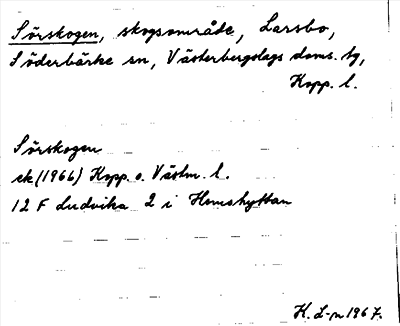 Sörskogen, skogsområde, Larsbo,
Söderbärke sn, Västerbergslags doms. tg,
Kopp. l.
Sörskogen
ek (1966) Kopp. o. Västm. l.
12 F Ludvika 2 i Hemshyttan
H. L-n 1967.